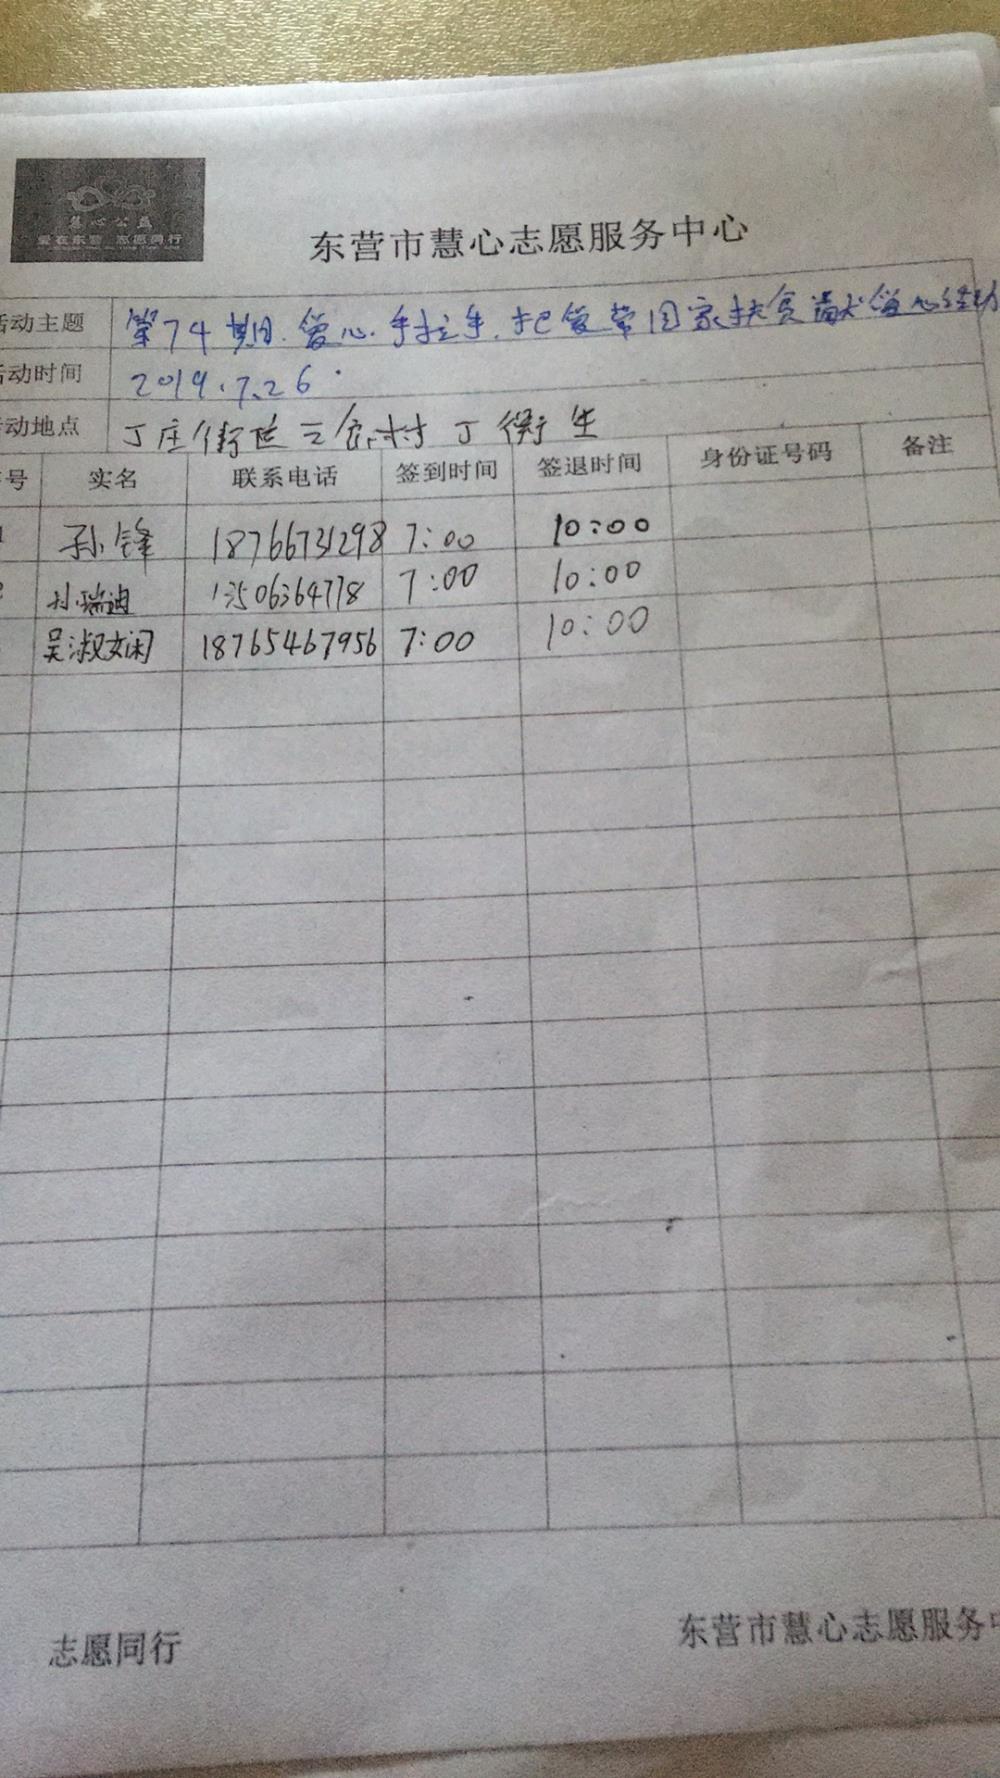 慧心公益
爱在东营 志愿同行
东营市慧心志愿服务中心
活动主题 第74期.爱心.手拉手.把爱带回家扶贫献爱心活动
活动时间 2019.7.26.
活动地点 丁庄街 村丁 生
号 实名 联系电话 签到时间 签退时间 身份证号码 备注
1 孙锋 18766731298 7:00 10:00
2 孙瑞迪 13506364778 7:00 10:00
吴淑娴 18765467956 7:00 10:00
志愿同行 东营市慧心志愿服务中